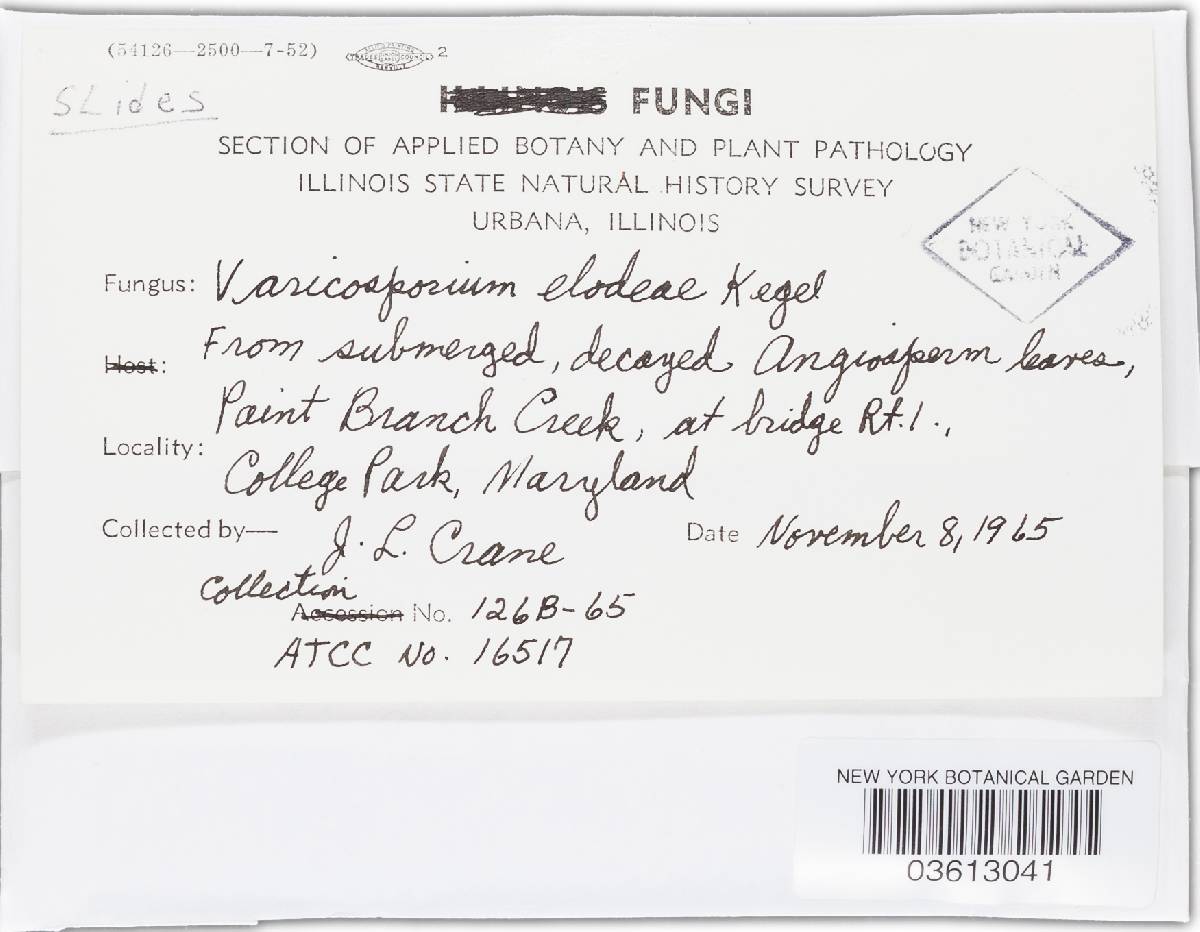 (54126—2500—7-52) 2
SLides
ILLINOIS FUNGI
SECTION OF APPLIED BOTANY AND PLANT PATHOLOGY
ILLINOIS STATE NATURAL HISTORY SURVEY
URBANA, ILLINOIS
NEW YORK
BOTANICAL
GARDEN
Fungus: Varicosporium elodeae Kegel
Host: From submerged, decayed Angiosperm leaves,
Paint Branch Creek, at bridge Rt. 1.,
Locality: College Park, Maryland
Collected by— J. L. Crane Date November 8, 1965
Collection
Accession No. 126B-65
ATCC No. 16517
NEW YORK BOTANICAL GARDEN
03613041